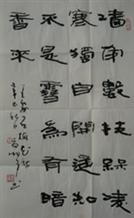 墻角數枝梅凌
寒獨自開遥知
不是雪為有暗
香來